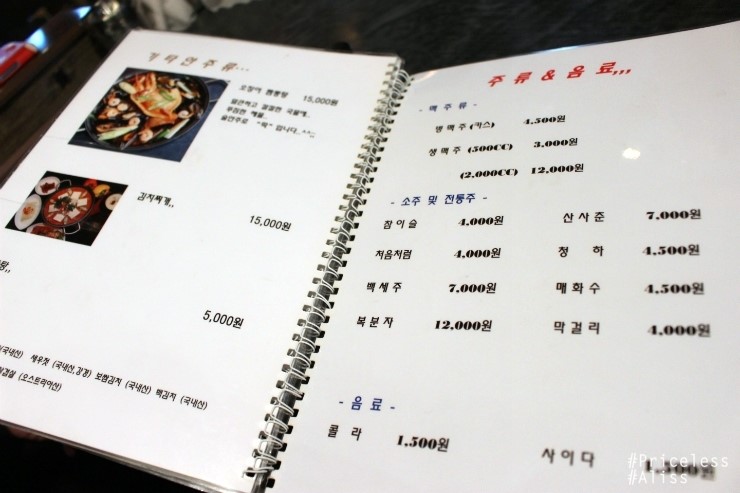 기타안주류...
오징어 짬뽕탕 15,000원
얼큰하고 걸쭉한 국물에..
푸짐한 해물..
술안주로 "딱" 입니다..^^;;
김치찌개,,
15,000원
탕,,
5,000원
(국내산) 새우젓 (국내산,강경) 보쌈김치 (국내산) 백김치 (국내산)
(오스트리아산)
주류 & 음료,,,
- 맥주류 -
병맥주(카스) 4,500원
생맥주 (500CC) 3,000원
(2,000CC) 12,000원
- 소주 및 전통주 -
참이슬 4,000원 산사춘 7,000원
처음처럼 4,000원 청하 4,500원
백세주 7,000원 매화수 4,500원
복분자 12,000원 막걸리 4,000원
- 음료 -
콜라 1,500원 사이다 1,500원
#Priceless
#Aliss